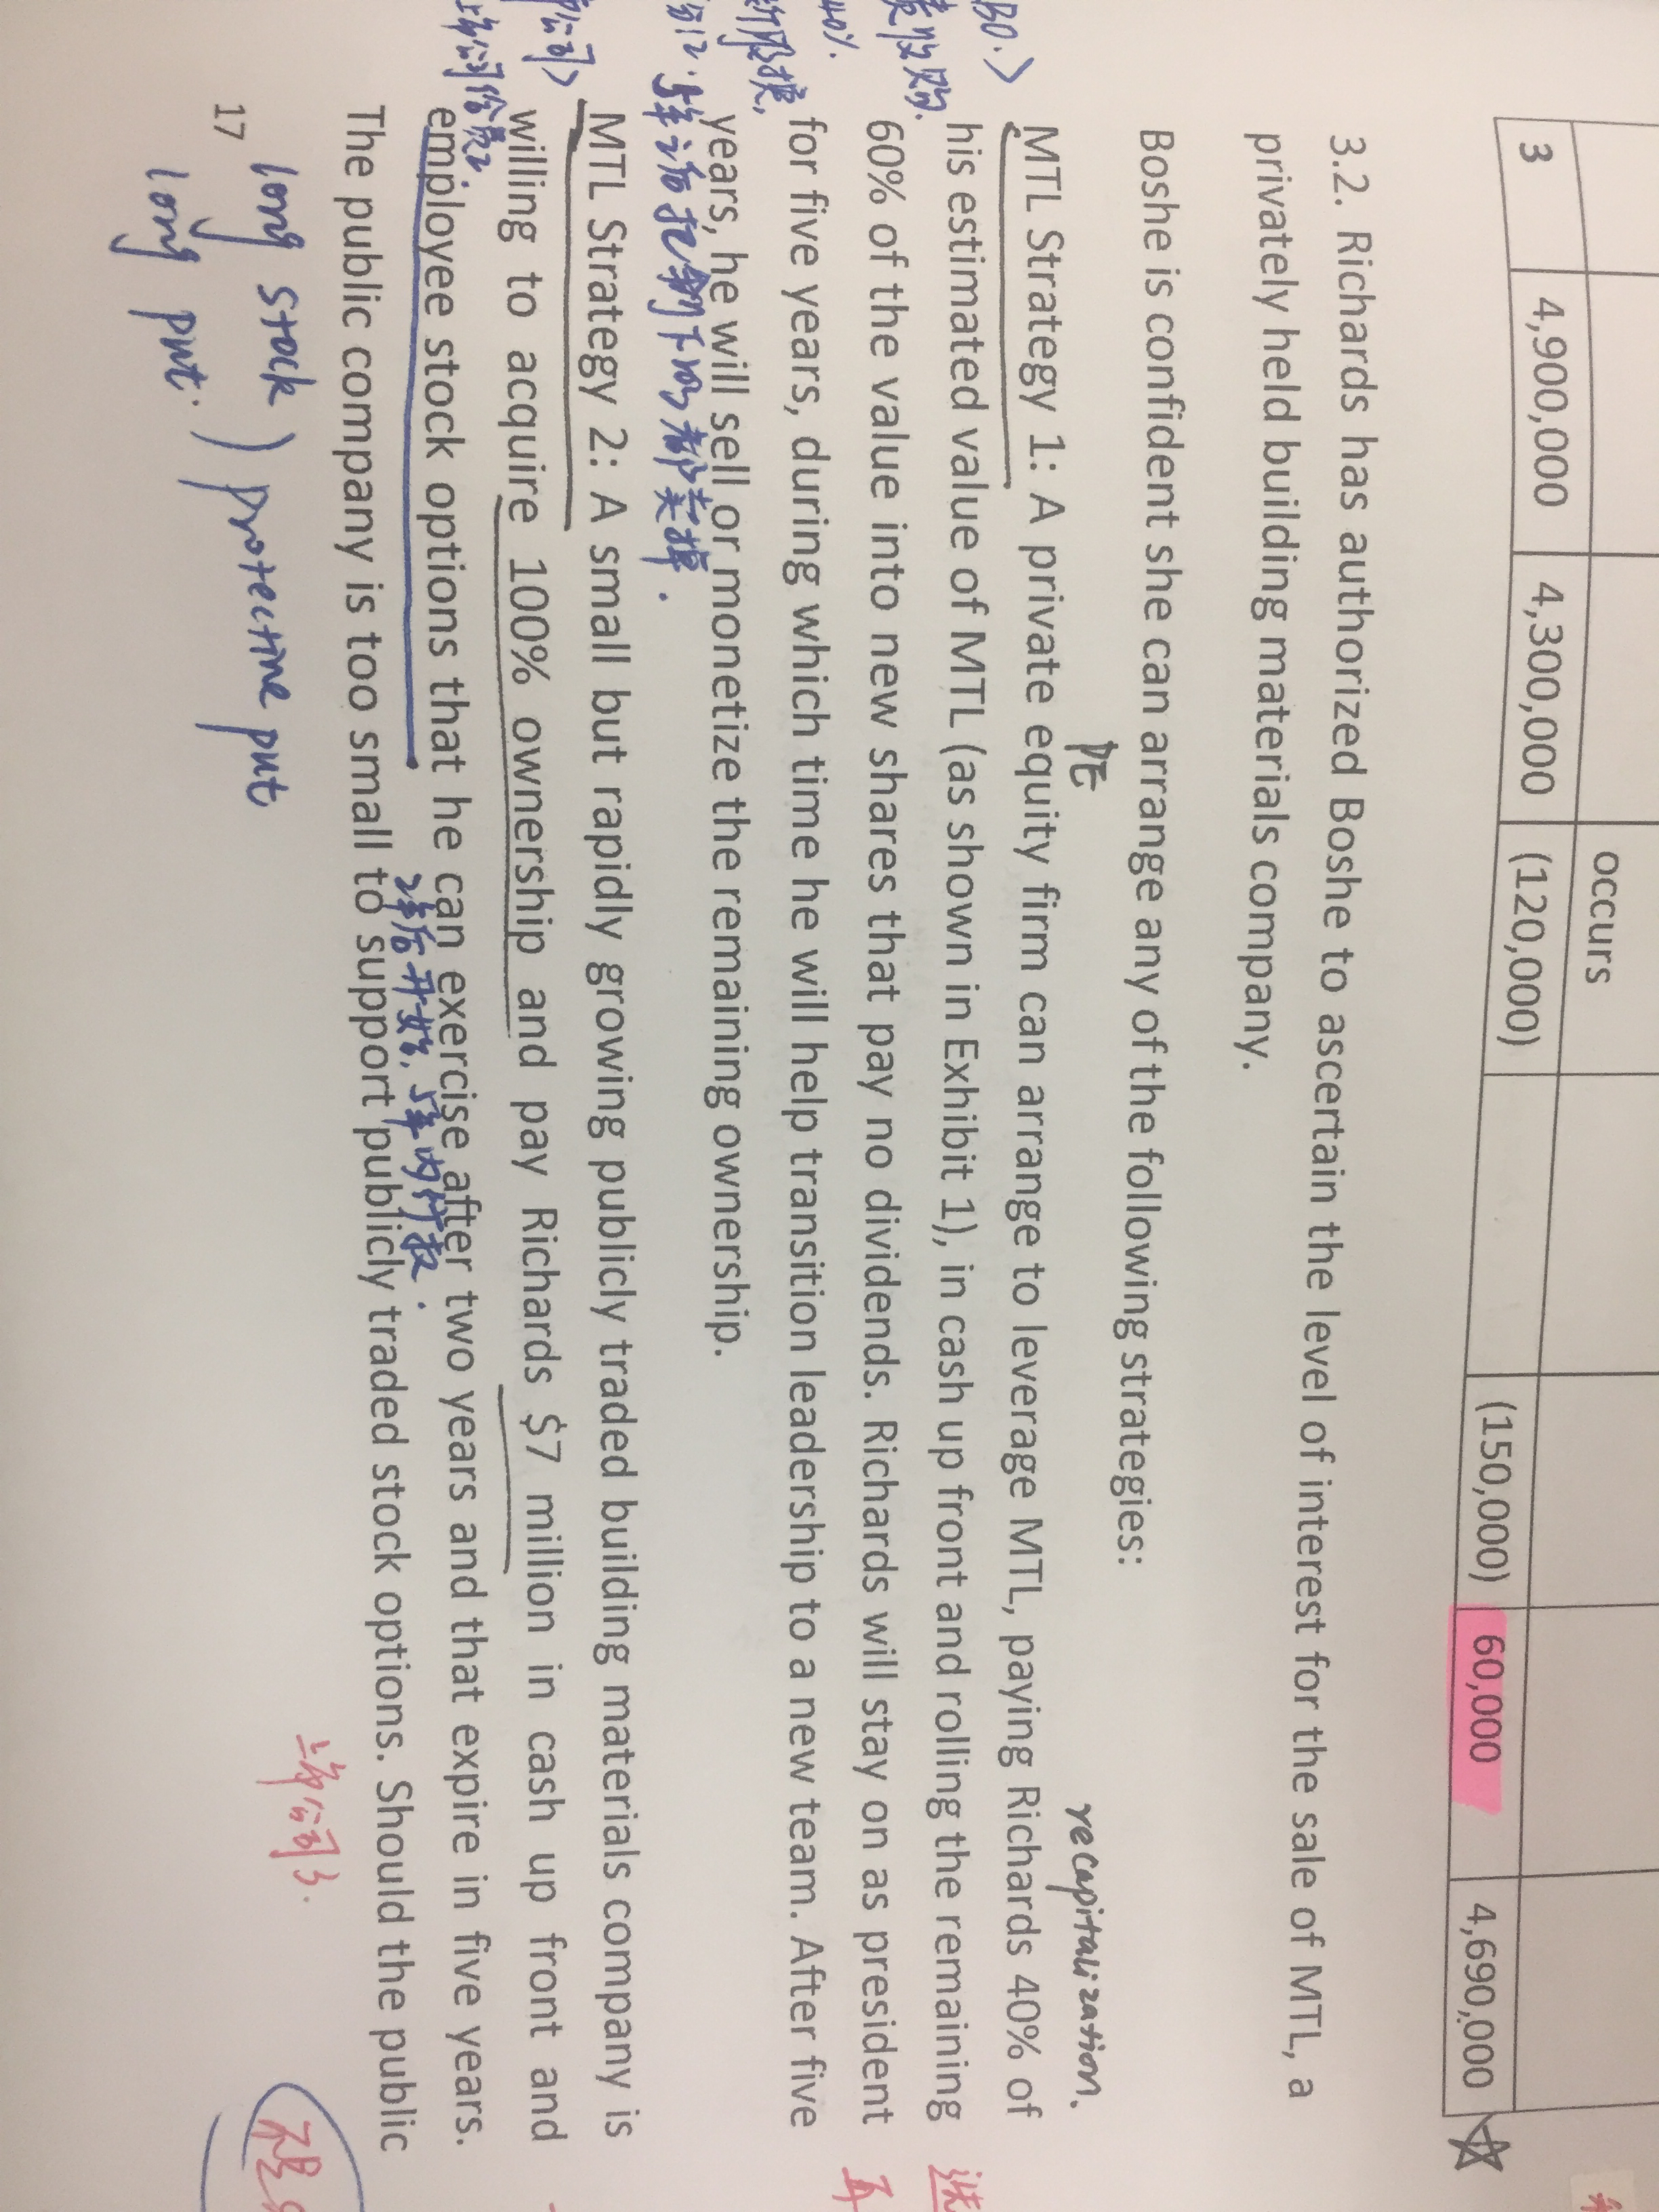 occurs
3 4,900,000 4,300,000 (120,000) (150,000) 60,000 4,690,000
3.2. Richards has authorized Boshe to ascertain the level of interest for the sale of MTL, a
privately held building materials company.
Boshe is confident she can arrange any of the following strategies:
PE recapitalization.
MTL Strategy 1: A private equity firm can arrange to leverage MTL, paying Richards 40% of
his estimated value of MTL (as shown in Exhibit 1), in cash up front and rolling the remaining
60% of the value into new shares that pay no dividends. Richards will stay on as president
40%.
for five years, during which time he will help transition leadership to a new team. After five
years, he will sell or monetize the remaining ownership.
MTL Strategy 2: A small but rapidly growing publicly traded building materials company is
willing to acquire 100% ownership and pay Richards $7 million in cash up front and
employee stock options that he can exercise after two years and that expire in five years.
2年后开始, 5年内行权.
The public company is too small to support publicly traded stock options. Should the public
17
long stock
long put.
protective put